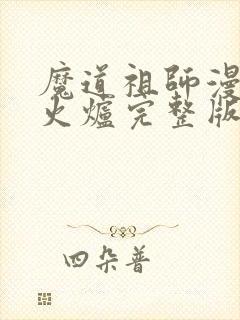 魔道祖師漫
火爐完整版
四朵普